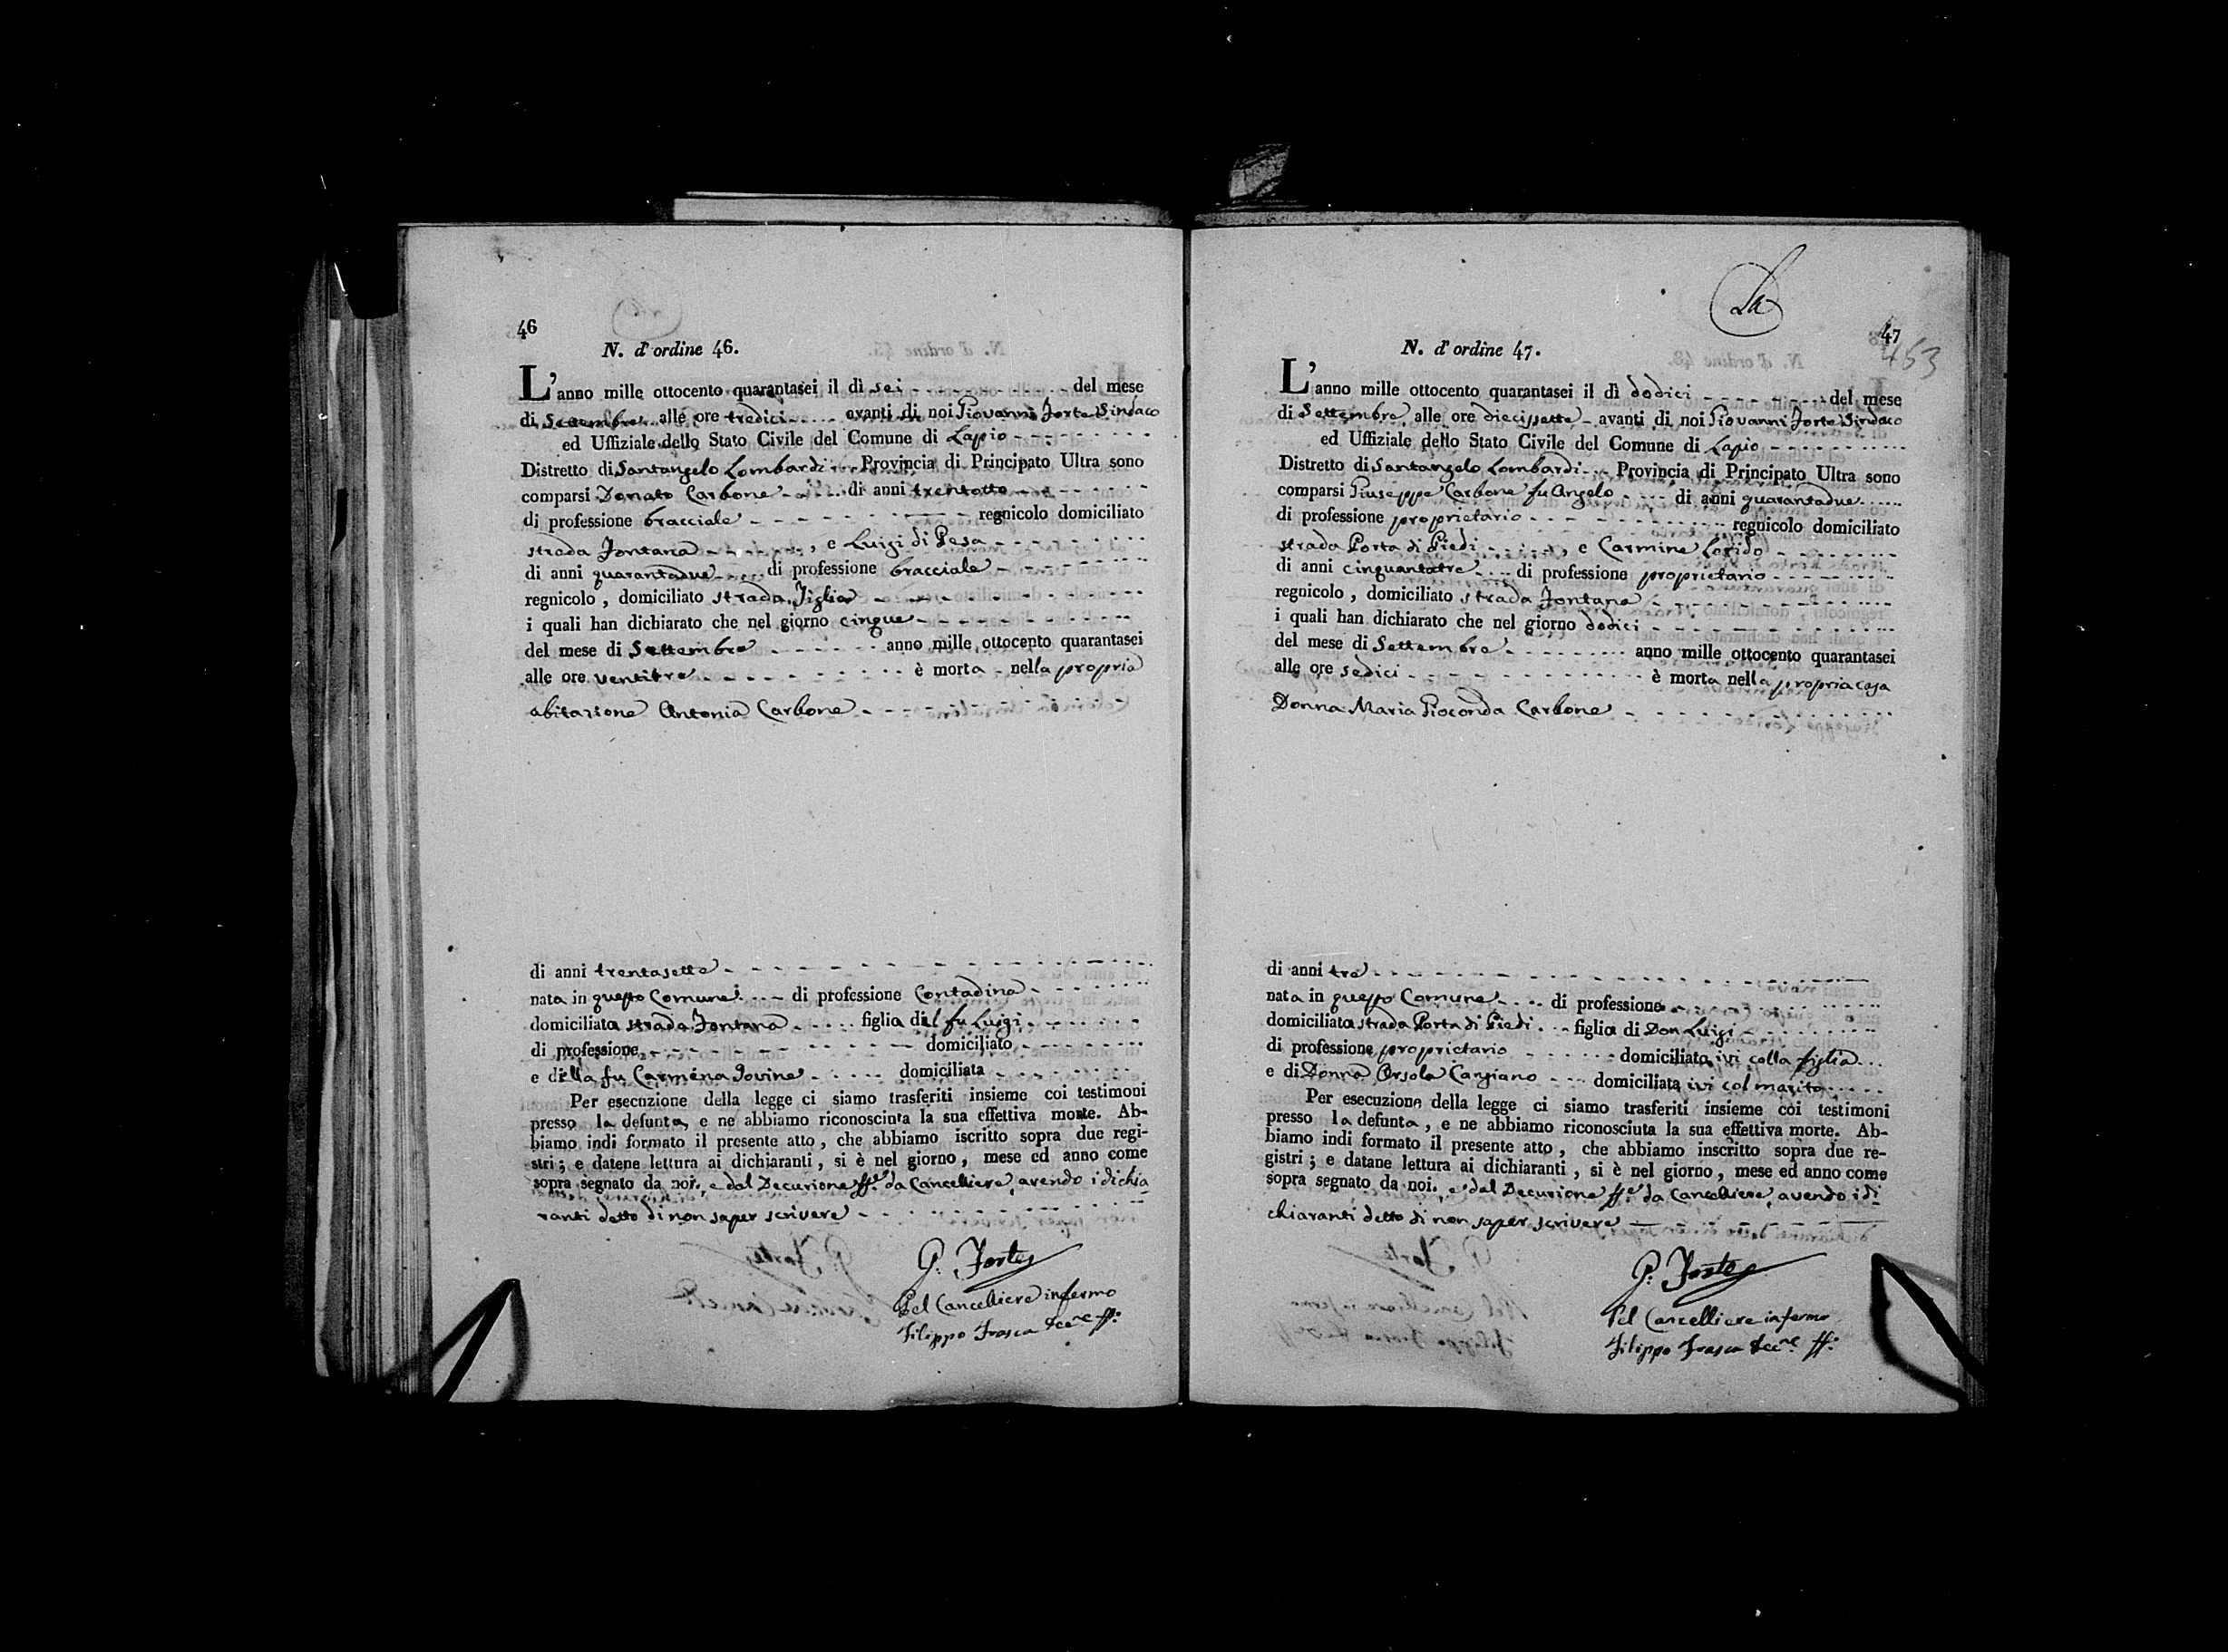 46
N. d'ordine 46.
L'anno mille ottocento quarantasei il dì sei del mese
di Settembre alle ore tredici avanti di noi Giovanni Forte Sindaco
ed Uffiziale dello Stato Civile del Comune di Lapio
Distretto di Santangelo Lombardi Provincia di Principato Ultra sono
comparsi Donato Carbone di anni trentotto
di professione bracciale regnicolo domiciliato
strada Fontana, e Luigi di Pesa
di anni quarantadue di professione bracciale
regnicolo, domiciliato strada Figlia
i quali han dichiarato che nel giorno cinque
del mese di Settembre anno mille ottocento quarantasei
alle ore ventitre è morta nella propria
abitazione Antonia Carbone
di anni trentasette
nata in questo Comune di professione Contadina
domiciliata strada Fontana figlia del fu Luigi
di professione domiciliato
e della fu Carmena Iovine domiciliata
Per esecuzione della legge ci siamo trasferiti insieme coi testimoni
presso la defunta, e ne abbiamo riconosciuta la sua effettiva morte. Ab-
biamo indi formato il presente atto, che abbiamo iscritto sopra due regi-
stri; e datene lettura ai dichiaranti, si è nel giorno, mese ed anno come
sopra segnato da noi, e dal Decurione ff.e da Cancelliere, avendo i dichia
ranti detto di non saper scrivere
G. Forte
Pel Cancelliere infermo
Filippo Frasca Dec.ne ff.
La
47
463
N. d'ordine 47.
L'anno mille ottocento quarantasei il dì dodici del mese
di Settembre alle ore diecissette avanti di noi Giovanni Forte Sindaco
ed Uffiziale dello Stato Civile del Comune di Lapio
Distretto di Santangelo Lombardi Provincia di Principato Ultra sono
comparsi Giuseppe Carbone fu Angelo di anni quarantadue
di professione proprietario regnicolo domiciliato
strada Porta di Piedi, e Carmine
di anni cinquantatre di professione proprietario
regnicolo, domiciliato strada Fontana
i quali han dichiarato che nel giorno dodici
del mese di Settembre anno mille ottocento quarantasei
alle ore sedici è morta nella propria casa
Donna Maria Gioconda Carbone
di anni tre
nata in questo Comune di professione
domiciliata strada Porta di Piedi figlia di Don Luigi
di professione proprietario domiciliato ivi colla figlia
e di Donna Orsola Cangiano domiciliata ivi col marito
Per esecuzione della legge ci siamo trasferiti insieme coi testimoni
presso la defunta, e ne abbiamo riconosciuta la sua effettiva morte. Ab-
biamo indi formato il presente atto, che abbiamo inscritto sopra due re-
gistri; e datane lettura ai dichiaranti, si è nel giorno, mese ed anno come
sopra segnato da noi, e dal Decurione ff.e da Cancelliere, avendo i di
chiaranti detto di non saper scrivere
G. Forte
Pel Cancelliere infermo
Filippo Frasca Dec.ne ff.